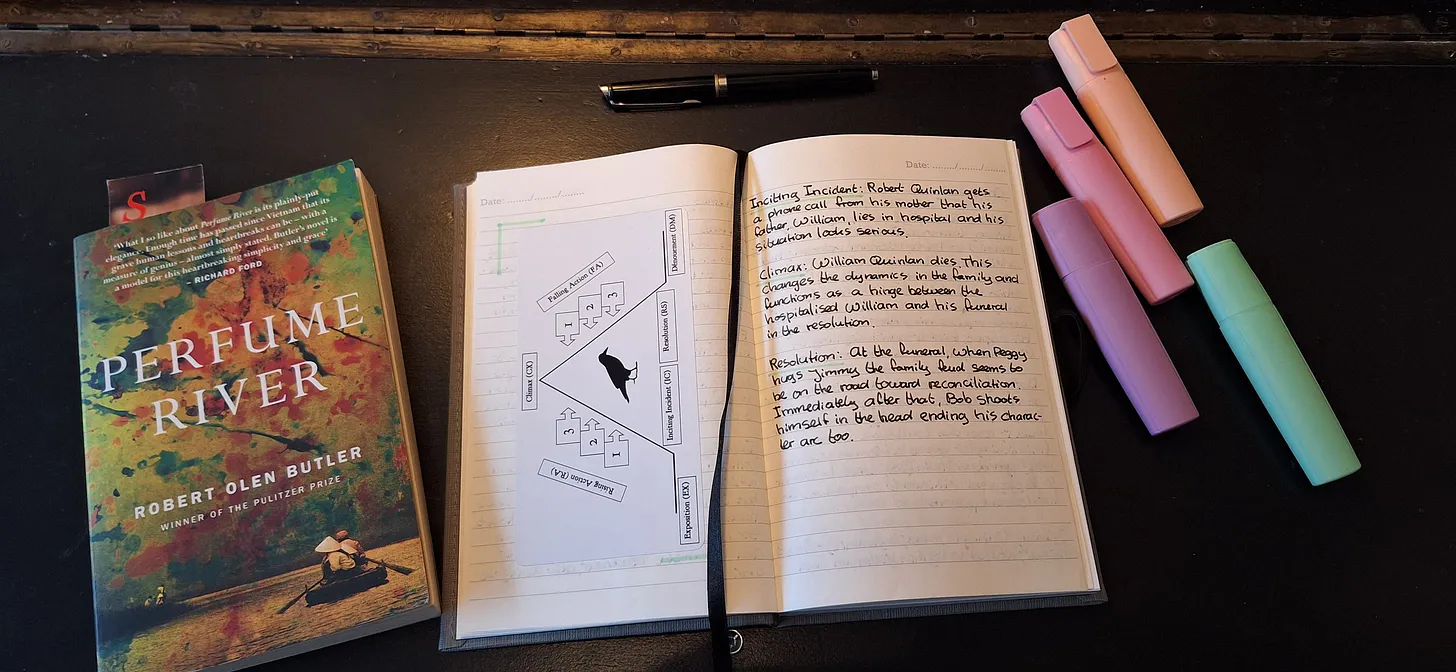 S
"What I so like about Perfume River is its plainly-put
elegance. Enough time has passed since Vietnam that its
grave human lessons and heartbreaks can be – with a
measure of genius – almost simply stated. Butler's novel is
a model for this heartbreaking simplicity and grace'
– RICHARD FORD
PERFUME
RIVER
ROBERT OLEN BUTLER
WINNER OF THE PULITZER PRIZE
Date: ......./......./.......
Exposition (EX)
Inciting Incident (IC)
Rising Action (RA)
1
2
3
Climax (CX)
Falling Action (FA)
1
2
3
Resolution (RS)
Dénouement (DM)
Date: ......./......./.......
Inciting Incident: Robert Quinlan gets
a phone call from his mother that his
father, William, lies in hospital and his
situation looks serious.
Climax: William Quinlan dies. This
changes the dynamics in the family and
functions as a hinge between the
hospitalised William and his funeral
in the resolution.
Resolution: At the funeral, when Peggy
hugs Jimmy the family feud seems to
be on the road toward reconciliation.
Immediately after that, Bob shoots
himself in the head ending his charac-
ter arc too.